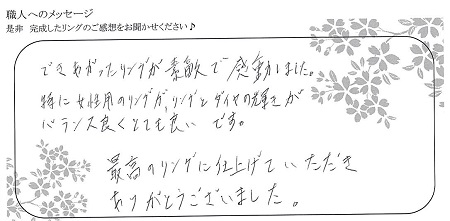 職人へのメッセージ
是非 完成したリングのご感想をお聞かせください♪
できあがったリングが素敵で感動しました。
特に女性用のリングが、リングとダイヤの輝きが
バランス良くとても良いです。
最高のリングに仕上げていただき
ありがとうございました。